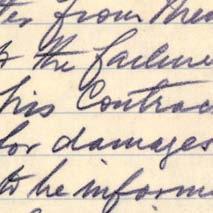 from
to the failure
his Contrac
for damages
to be inform